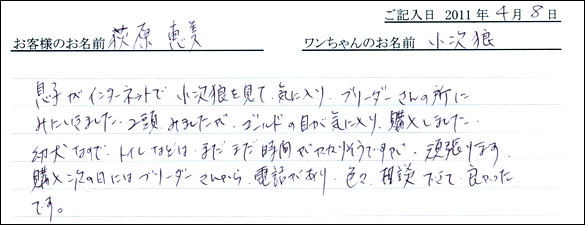 ご記入日 2011年4月8日
お客様のお名前 萩原 恵美 ワンちゃんのお名前 小次狼
息子がインターネットで 小次狼を見て 気に入り、ブリーダーさんの所に
みにいきました。2頭 みましたが、ゴールドの目が気に入り、購入しました。
幼犬なので、トイレなどは まだまだ時間がかかりそうですが、頑張ります。
購入次の日にはブリーダーさんから 電話があり、色々 相談できて 良かった
です。